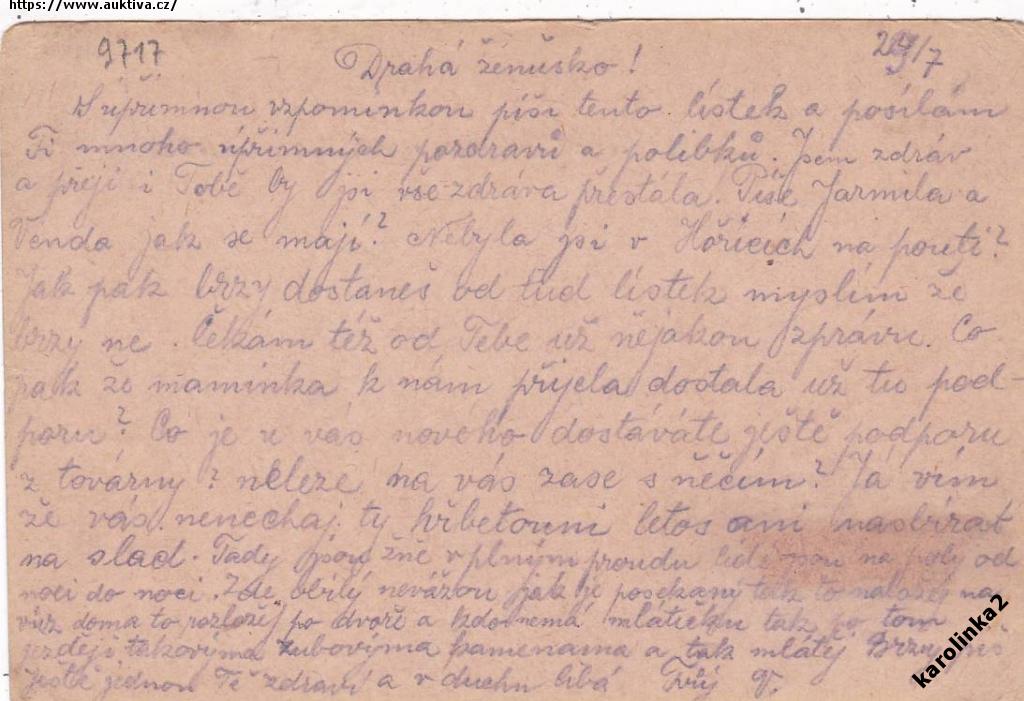 https://www.auktiva.cz/
9717
Drahá ženuško! 29/7
S upřímnou vzpomínkou píši tento lístek a posílám
Ti mnoho upřímných pozdravů a polibků. Jsem zdráv
a přeji i Tobě by jsi vše zdráva přestála. Píše Jarmila a
Venda jak se mají? Nebyla jsi v Hořicích na pouti?
Jak pak brzy dostaneš od tud lístek myslím že
brzy ne. Čekám též od Tebe už nějakou zprávu. Co
pak že maminka k nám přijela dostala už tu pod-
poru? Co je u vás nového dostáváte ještě podporu
z továrny? neleze na vás zase s něčím? Já vím
že vás nenechaj ty hrbetouni letos ani nasbírat
na slad. Tady jsou žně v plným proudu lidi jsou na poly od
noci do noci. Zde obilý nevážou jak je posekaný tak to naložej na
vůz doma to rozložej po dvoře a kdo nemá mlátičku tak po tom
jezdějí takovýma zubovýma kamenama a tak mlátěj
ještě jednou Tě zdraví a v duchu líbá Tvůj V.
karolinka2